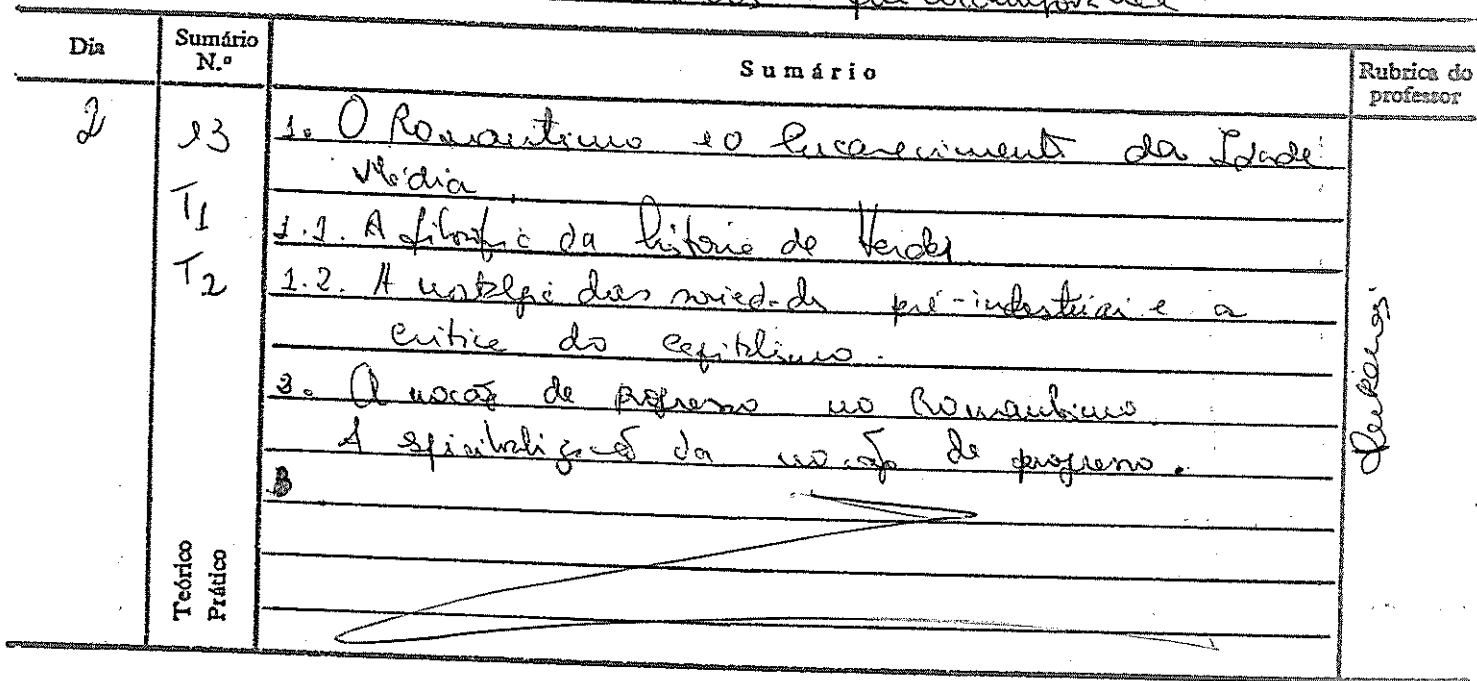 Dia
Sumário N.º
Sumário
Rubrica do professor
2
13
T1
T2
1. O Romantismo e o Encarecimento da Idade
Média
1.1. A filosofia da história de Herder.
1.2. A nostalgia das sociedades pré-industriais e a
crítica do capitalismo.
2. A noção de progresso no Romantismo
A espiritualização da noção de progresso.
Teórico
Prático